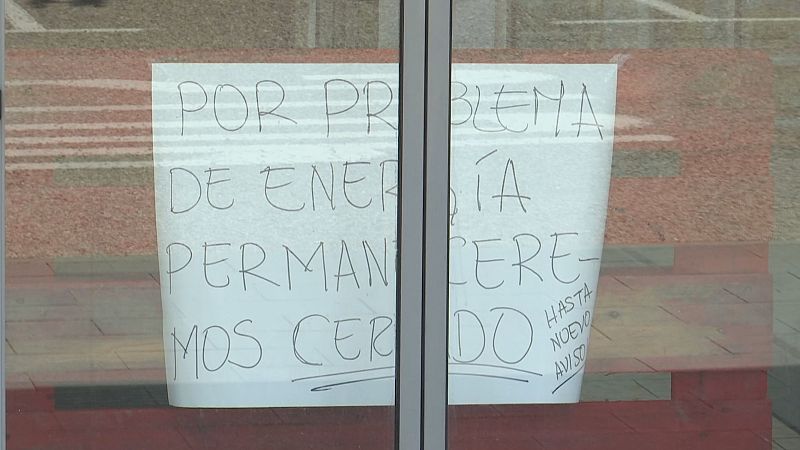 POR PROBLEMA
DE ENERGÍA
PERMANECERE-
MOS CERRADO
HASTA
NUEVO
AVISO